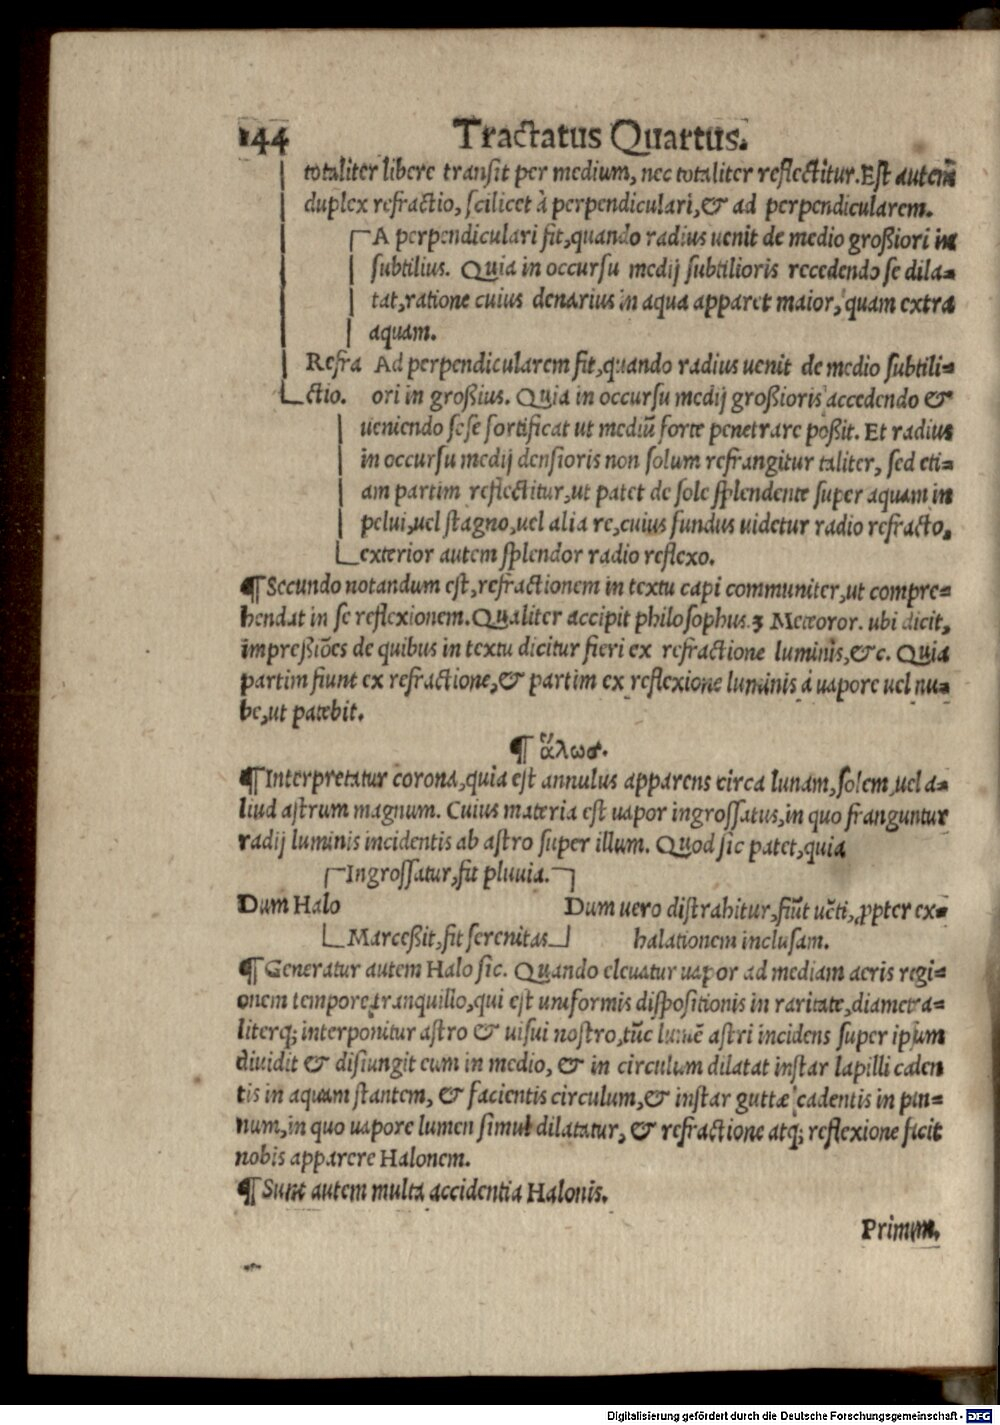 144 Tractatus Quartus.
totaliter libere transit per medium, nec totaliter reflectitur. Est autem
duplex refractio, scilicet à perpendiculari, & ad perpendicularem.
A perpendiculari fit, quando radius uenit de medio großiori in
subtilius. Quia in occursu medij subtilioris recedendo se dila=
tat, ratione cuius denarius in aqua apparet maior, quam extra
aquam.
Refra Ad perpendicularem fit, quando radius uenit de medio subtili=
ctio. ori in großius. Quia in occursu medij großioris accedendo &
ueniendo sese fortificat ut mediũ forte penetrare poßit. Et radius
in occursu medij densioris non solum refrangitur taliter, sed eti=
am partim reflectitur, ut patet de sole splendente super aquam in
pelui, uel stagno, uel alia re, cuius fundus uidetur radio refracto,
exterior autem splendor radio reflexo.
¶ Secundo notandum est, refractionem in textu capi communiter, ut compre=
hendat in se reflexionem. Qualiter accipit philosophus. 3 Meteoror. ubi dicit,
impreßiões de quibus in textu dicitur fieri ex refractione luminis, &c. Quia
partim fiunt ex refractione, & partim ex reflexione luminis à uapore uel nu=
be, ut patebit.
¶ ἅλως.
¶ Interpretatur corona, quia est annulus apparens circa lunam, solem, uel a=
liud astrum magnum. Cuius materia est uapor ingrossatus, in quo franguntur
radij luminis incidentis ab astro super illum. Quod sic patet, quia
Ingrossatur, fit pluuia.
Dum Halo Dum uero distrahitur, fiũt uẽti, ꝓpter ex=
Marceßit, fit serenitas halationem inclusam.
¶ Generatur autem Halo sic. Quando eleuatur uapor ad mediam aeris regi=
onem tempore tranquillo, qui est uniformis dispositionis in raritate, diametra=
literq; interponitur astro & uisui nostro, tũc lumẽ astri incidens super ipsum
diuidit & disiungit eum in medio, & in circulum dilatat instar lapilli caden
tis in aquam stantem, & facientis circulum, & instar guttæ cadentis in pan=
num, in quo uapore lumen simul dilatatur, & refractione atq; reflexione facit
nobis apparere Halonem.
¶ Sunt autem multa accidentia Halonis.
Primum,
Digitalisierung gefördert durch die Deutsche Forschungsgemeinschaft - DFG